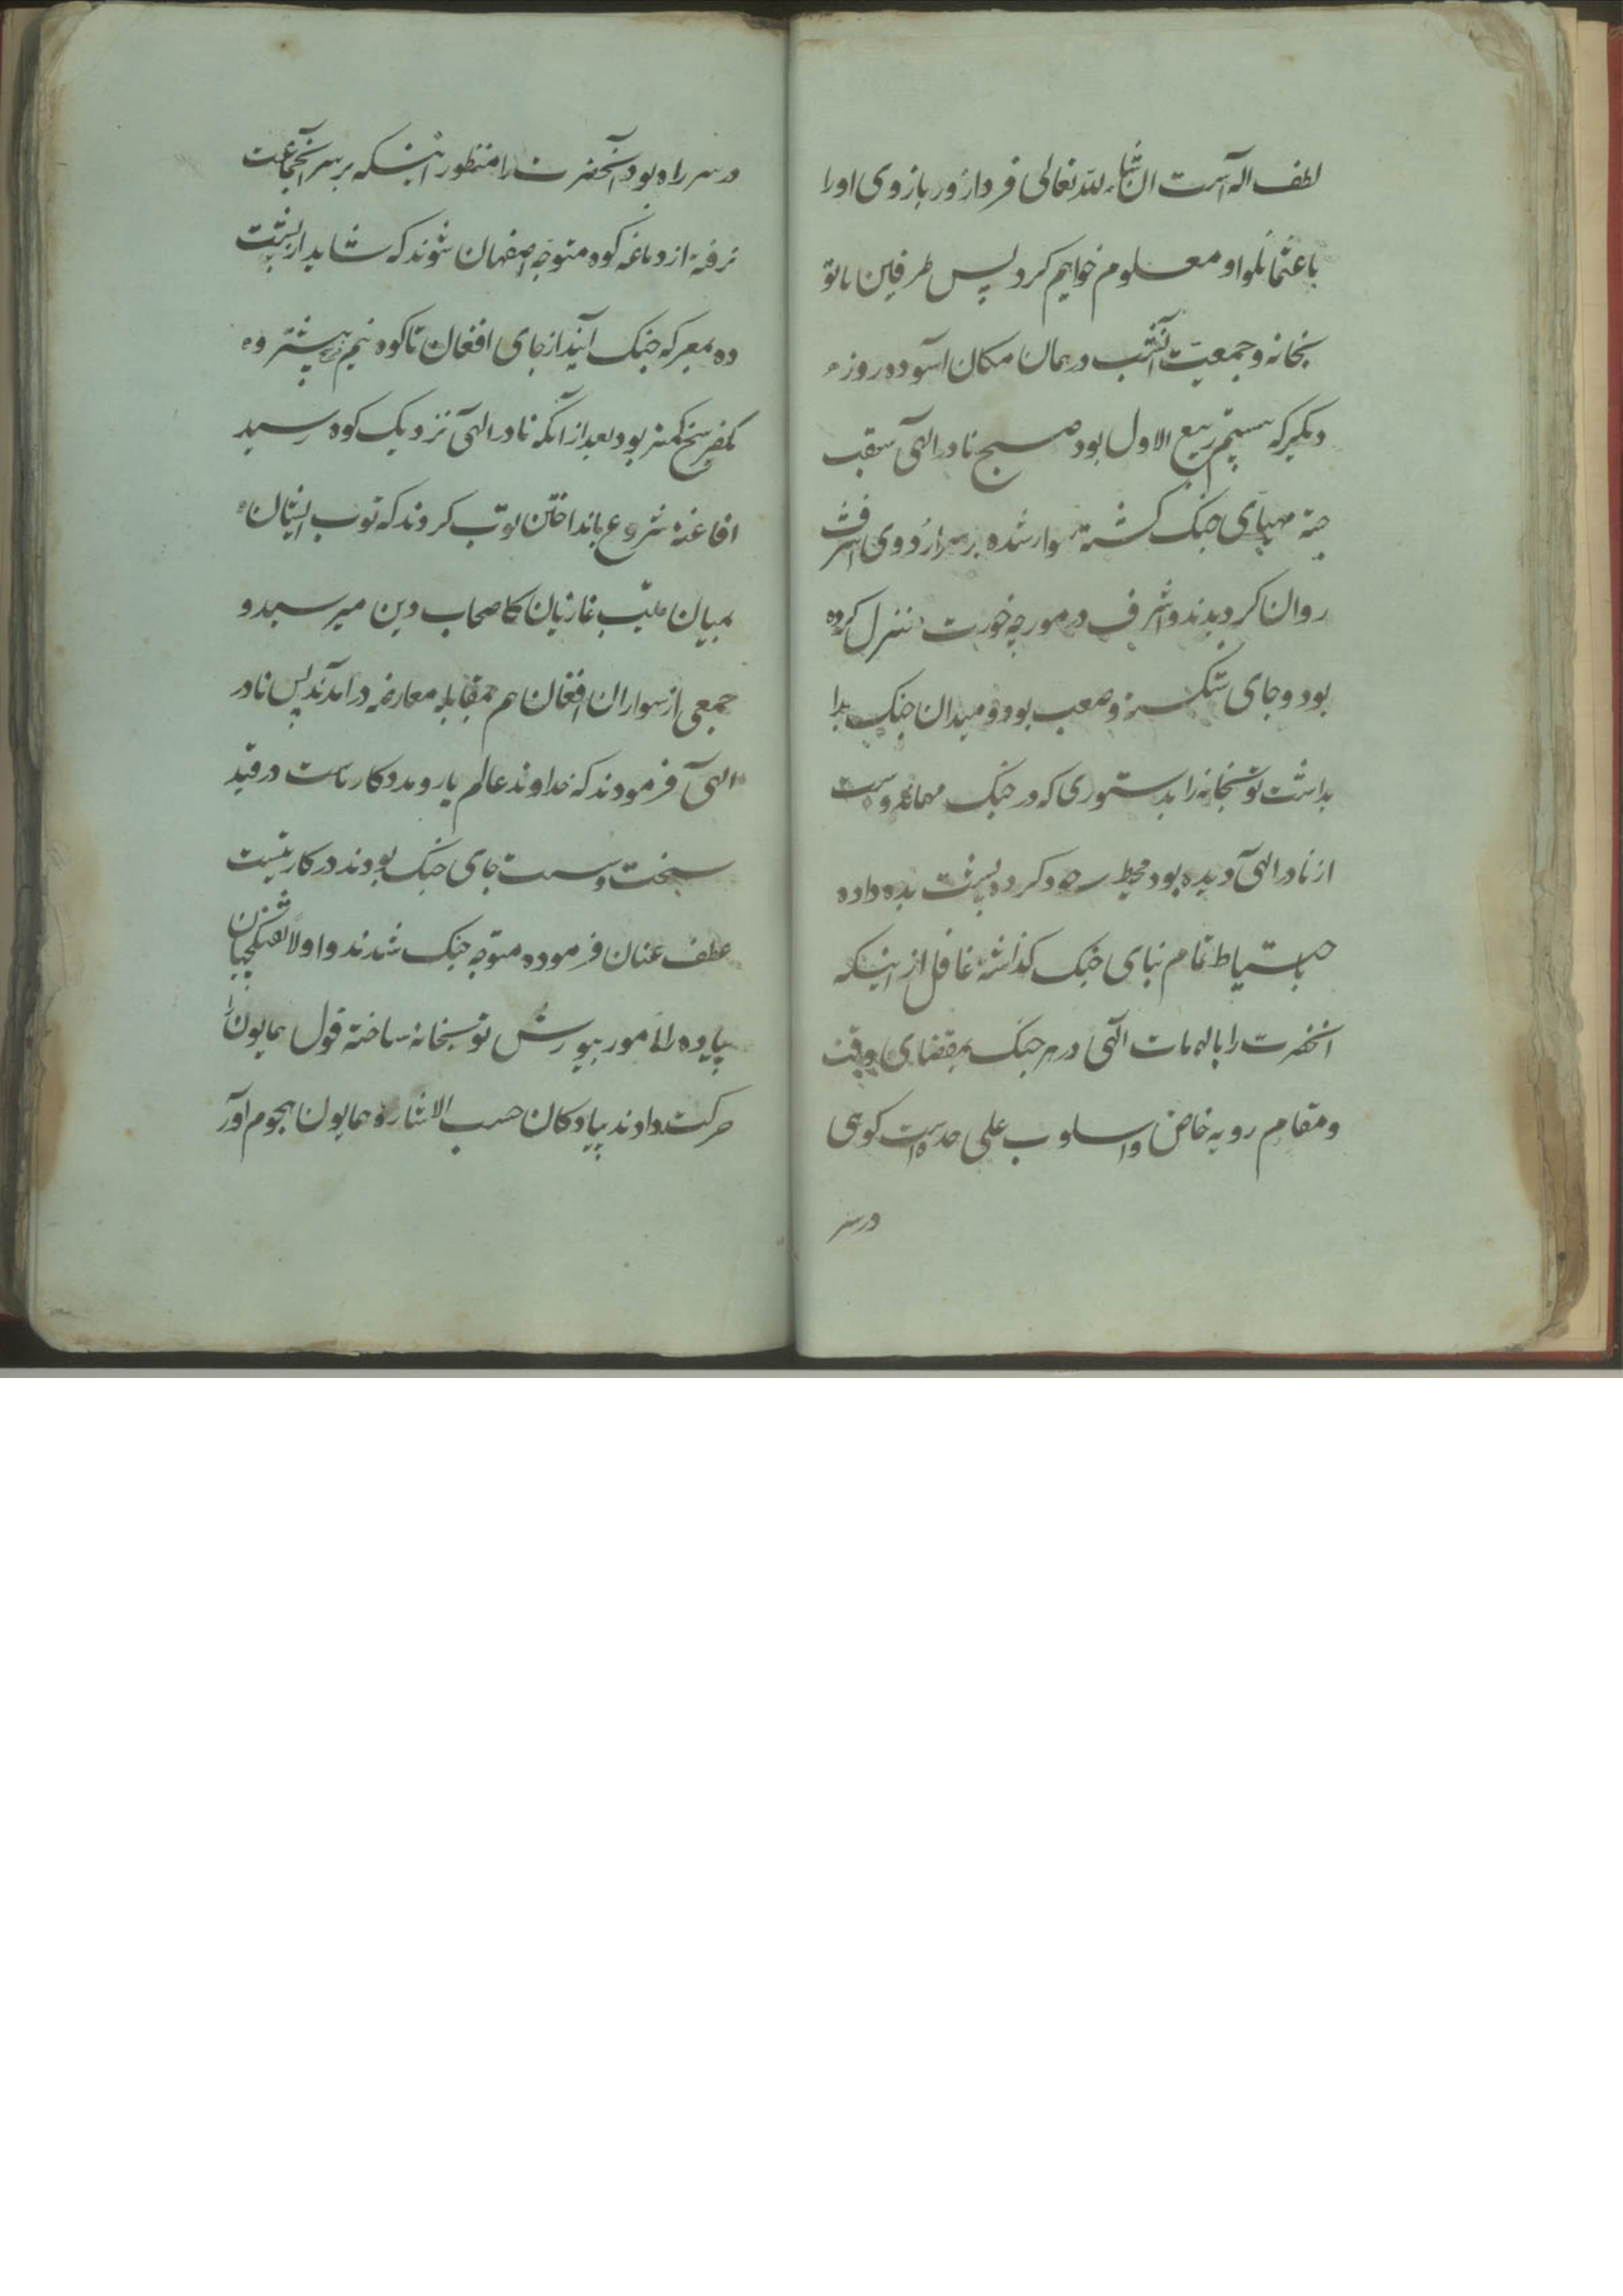 لطف اله است ان شاء لله تعالی فردا زور بازوی او را
با عثمانلو او معلوم خواهیم کرد پس طرفین با تو
بخانه و جمعیت آنشب در همان مکان آسوده روز
دیگر که بیستم ربیع الاول بود صبح نادر الهی
مهیای جنک کشته سوار شده بر سر اردوی اشرف
روان کردیدند و اشرف در مورچه خورت منزل کرده
بود و جای سنکر و صعب بود و میدان جنک
بداشت توپخانه را بدستوری که در جنک مهماندوست
از نادر الهی دیده بود محیط خود کرده پشت بده داده
باحتیاط تمام بنای جنک کذاشته غافل از اینکه
انحضرت را بالهامات الهی در هر جنک بمقتضای وقت
و مقام رویه خاص و اسلوب علی حده است کوهی
در سر
در سر راه بود آنحضرت را منظور اینکه بر سر آنجماعت
نرفته از دماغه کوه متوجه اصفهان شوند که شاید از پشت
ده بمعرکه جنک آیند از جای افغان تا کوه نیم بیشتر و
یکفرسخ کمتر بود بعد از آنکه نادر الهی نزدیک کوه رسید
افاغنه شروع بانداختن توپ کردند که توپ ایشان
بمیان غازیان کاصحاب دین میرسید و
جمعی از سواران افغان هم بمقابله معارضه درآمدند پس نادر
الهی فرمودند که خداوند عالم یار و مددکار ماست در قید
سخت و سست جای جنک بودند در کار نیست
عطف عنان فرموده متوجه جنک شدند و اولا تفنکچیان
پیاده را مامور بیورش توپخانه ساخته قول همایون را
حرکت دادند پیادکان حسب الاشاره همایون هجوم آور